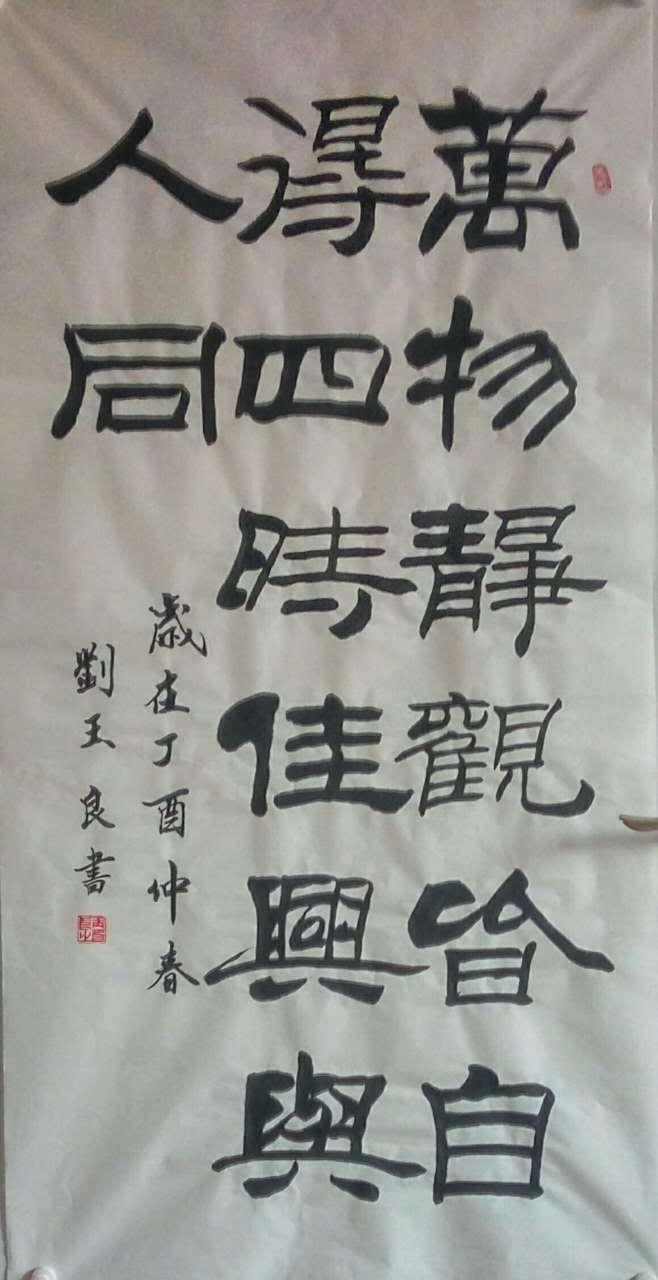 萬物靜觀皆自
得四時佳興與
人同
歲在丁酉仲春
劉玉良書